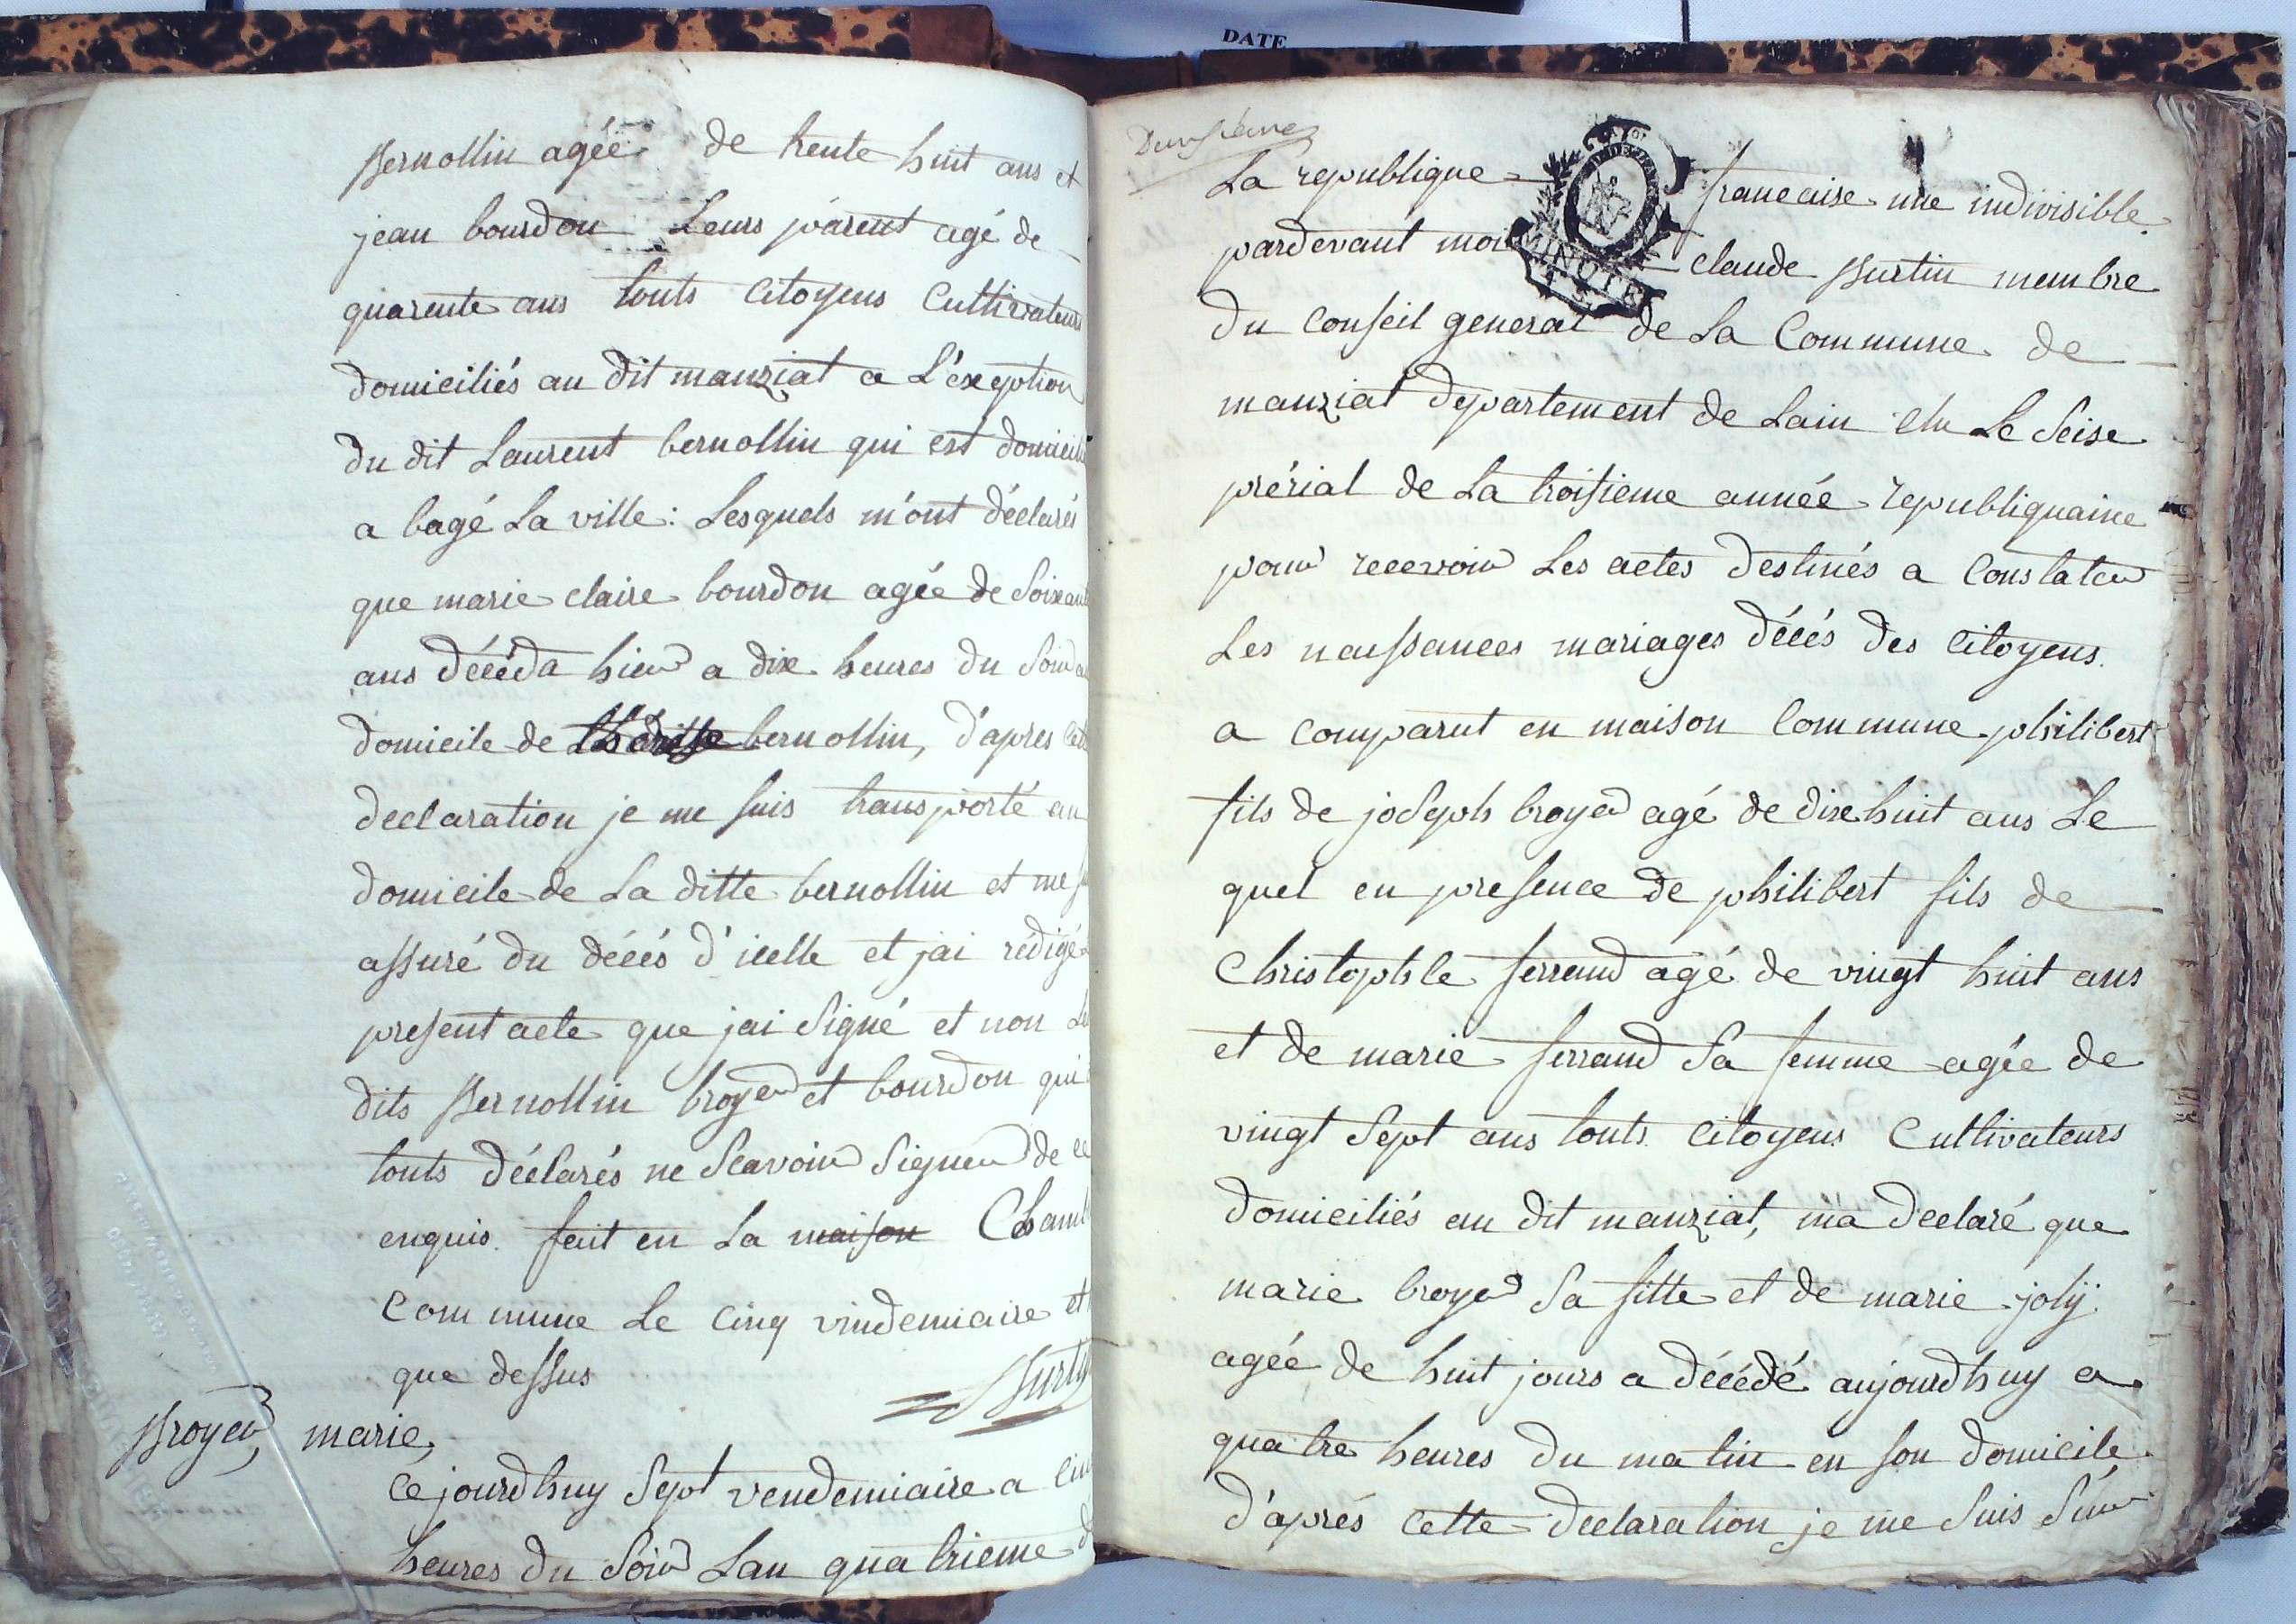 DATE
Bernollin agée de trente huit ans et
jean bourdon Leurs parent agé de
quarente ans touts Citoyens Cultivateurs
domiciliés au dit manziat a L'exeption
du dit Laurent bernollin qui est domicilié
a bagé La ville : Lesquels m'ont déclarés
que marie claire bourdon agée de Soixante
ans décéda hier a dix heures du Soir au
domicile de bernollin, d'apres cette
declaration je me suis transporté au
domicile de La ditte bernollin et me suis
assuré du décés d'icelle et jai rédigé
present acte que jai Signé et non Les
dits Bernollin broyer et bourdon qui
touts déclarés ne Scavoir Signer de ce
enquis. fait en La maison Chambre
Commune Le Cinq vindemiaire et
que dessus
Burtin
Broyer marie,
Ce jourdhuy Sept vendemiaire a cinq
heures du Soir Lan quatrieme de
Deuxième
La republique francaise une indivisible
pardevant moi claude Burtin membre
MINUTE
du Conseil general de La Commune de
manziat departement de Lain elu Le Seise
prérial de La troisieme année republiquaine
pour recevoir Les actes destinés a Constater
Les naissances mariages décés des Citoyens.
a comparut en maison Commune philibert
fils de joseph broyer agé de dixhuit ans Le
quel en presence de philibert fils de
Christophle ferrand agé de vingt huit ans
et de marie ferrand Sa femme agée de
vingt Sept ans touts Citoyens Cultivateurs
domiciliés au dit manziat, ma declaré que
marie broyer Sa fille et de marie joly
agée de huit jours a décédé aujourdhuy a
quatre heures du matin en son domicile
d'aprés cette declaration je me Suis Sur